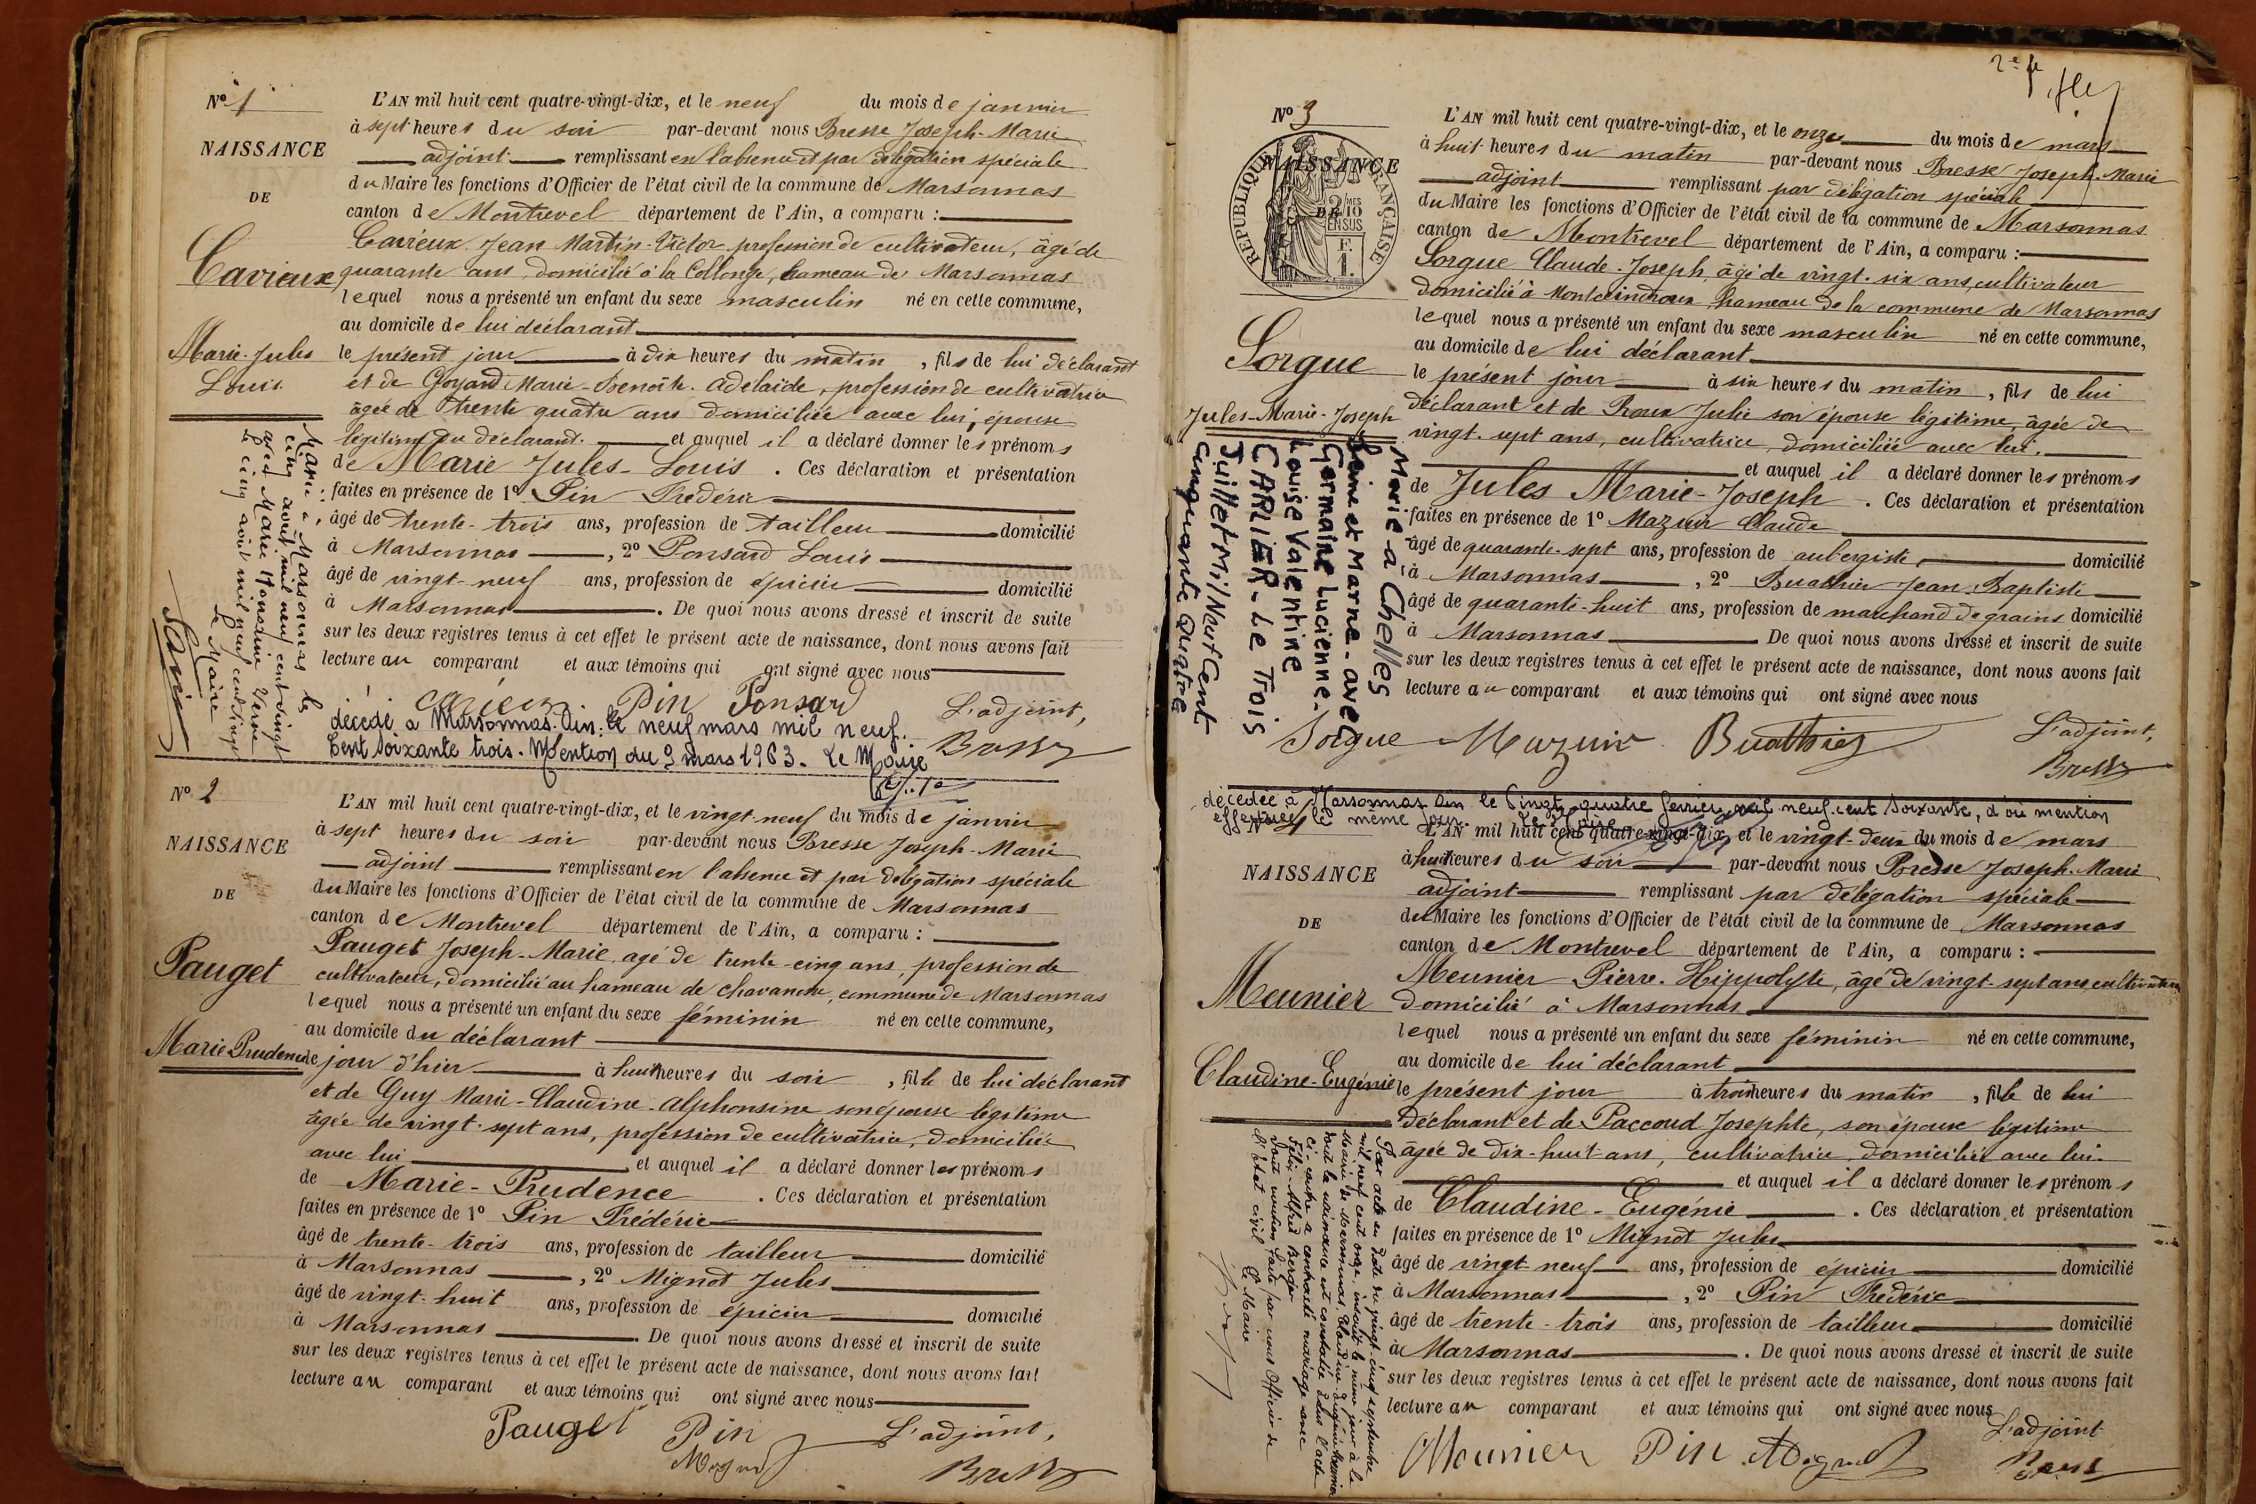 Nº 1
NAISSANCE
DE
Cavieux
Marie-Jules
Louis
L'AN mil huit cent quatre-vingt-dix, et le neuf du mois de janvier
à sept heures du soir par-devant nous Bresse Joseph-Marie
adjoint remplissant en l'absence et par délégation spéciale
du Maire les fonctions d'Officier de l'état civil de la commune de Marsonnas
canton de Montrevel département de l'Ain, a comparu :
Cavieux Jean Martin-Victor profession de cultivateur, âgé de
quarante ans, domicilié à la Collonge, hameau de Marsonnas
lequel nous a présenté un enfant du sexe masculin né en cette commune,
au domicile de lui déclarant
le présent jour à dix heures du matin, fils de lui déclarant
et de Goyard Marie-Benoîte Adelaïde, profession de cultivatrice
âgée de trente quatre ans domiciliée avec lui, épouse
légitime du déclarant. et auquel il a déclaré donner les prénoms
de Marie Jules-Louis. Ces déclaration et présentation
faites en présence de 1º Pin Frédéric
âgé de trente-trois ans, profession de tailleur domicilié
à Marsonnas, 2º Ponsard Louis
âgé de vingt-neuf ans, profession de épicier domicilié
à Marsonnas. De quoi nous avons dressé et inscrit de suite
sur les deux registres tenus à cet effet le présent acte de naissance, dont nous avons fait
lecture au comparant et aux témoins qui ont signé avec nous
Cavieux Pin Ponsard L'adjoint,
Bresse
Marié à Marsonnas le
cinq août mil neuf cent vingt
avec Marie Honorine Verne
Le cinq août mil neuf cent vingt
Le Maire
décédé à Marsonnas. Ain. le neuf mars mil neuf.
Cent soixante trois. Mention du 9 mars 1963. Le Maire
Nº 2
NAISSANCE
DE
Pauget
Marie Prudence
L'AN mil huit cent quatre-vingt-dix, et le vingt neuf du mois de janvier
à sept heures du soir par-devant nous Bresse Joseph-Marie
adjoint remplissant en l'absence et par délégation spéciale
du Maire les fonctions d'Officier de l'état civil de la commune de Marsonnas
canton de Montrevel département de l'Ain, a comparu :
Pauget Joseph-Marie, agé de trente-cinq ans, profession de
cultivateur, domicilié au hameau de Chavanne, commune de Marsonnas
lequel nous a présenté un enfant du sexe féminin né en cette commune,
au domicile du déclarant
le jour d'hier à huit heures du soir, fille de lui déclarant
et de Guy Marie-Claudine-Alphonsine son épouse légitime
âgée de vingt-sept ans, profession de cultivatrice, domiciliée
avec lui et auquel il a déclaré donner les prénoms
de Marie-Prudence. Ces déclaration et présentation
faites en présence de 1º Pin Frédéric
âgé de trente-trois ans, profession de tailleur domicilié
à Marsonnas, 2º Mignot Jules
âgé de vingt-huit ans, profession de épicier domicilié
à Marsonnas. De quoi nous avons dressé et inscrit de suite
sur les deux registres tenus à cet effet le présent acte de naissance, dont nous avons fait
lecture au comparant et aux témoins qui ont signé avec nous
Pauget Pin L'adjoint,
Mignot Bresse
2e f
Nº 3
NAISSANCE
DE
RÉPUBLIQUE FRANÇAISE
2/10 MES
EN SUS
F.
1.
Sorgue
Jules-Marie-Joseph
L'AN mil huit cent quatre-vingt-dix, et le onze du mois de mars
à huit heures du matin par-devant nous Bresse Joseph-Marie
adjoint remplissant par délégation spéciale
du Maire les fonctions d'Officier de l'état civil de la commune de Marsonnas
canton de Montrevel département de l'Ain, a comparu :
Sorgue Claude-Joseph, âgé de vingt-six ans, cultivateur
domicilié à Montceindroux hameau de la commune de Marsonnas
lequel nous a présenté un enfant du sexe masculin né en cette commune,
au domicile de lui déclarant
le présent jour à six heures du matin, fils de lui
déclarant et de Roux Julie son épouse légitime, âgée de
vingt-sept ans, cultivatrice, domiciliée avec lui.
et auquel il a déclaré donner les prénoms
de Jules Marie-Joseph. Ces déclaration et présentation
faites en présence de 1º Mazuir Claude
âgé de quarante-sept ans, profession de aubergiste domicilié
à Marsonnas, 2º Buathier Jean-Baptiste
âgé de quarante-huit ans, profession de marchand de grains domicilié
à Marsonnas. De quoi nous avons dressé et inscrit de suite
sur les deux registres tenus à cet effet le présent acte de naissance, dont nous avons fait
lecture au comparant et aux témoins qui ont signé avec nous
Sorgue Mazuir Buathier L'adjoint,
Bresse
Marié à Chelles
Seine et Marne - avec
Germaine Lucienne-
Louise Valentine
CARLIER - Le Trois
Juillet Mil Neuf Cent
Cinquante Quatre
décédée à Marsonnas Ain le Vingt quatre février mil neuf cent soixante, d'où mention
effectuée le même jour. Le Maire
Nº 4
NAISSANCE
DE
Meunier
Claudine-Eugénie
L'AN mil huit cent quatre-vingt-dix, et le vingt-deux du mois de mars
à huit heures du soir par-devant nous Bresse Joseph-Marie
adjoint remplissant par délégation spéciale
du Maire les fonctions d'Officier de l'état civil de la commune de Marsonnas
canton de Montrevel département de l'Ain, a comparu :
Meunier Pierre-Hippolyte, âgé de vingt-sept ans cultivateur
domicilié à Marsonnas
lequel nous a présenté un enfant du sexe féminin né en cette commune,
au domicile de lui déclarant
le présent jour à trois heures du matin, fille de lui
déclarant et de Paccoud Josephte, son épouse légitime
âgée de dix-huit ans, cultivatrice, domiciliée avec lui.
et auquel il a déclaré donner les prénoms
de Claudine-Eugénie. Ces déclaration et présentation
faites en présence de 1º Mignot Jules
âgé de vingt neuf ans, profession de épicier domicilié
à Marsonnas, 2º Pin Frédéric
âgé de trente-trois ans, profession de tailleur domicilié
à Marsonnas. De quoi nous avons dressé et inscrit de suite
sur les deux registres tenus à cet effet le présent acte de naissance, dont nous avons fait
lecture au comparant et aux témoins qui ont signé avec nous
Meunier Pin Mignot L'adjoint
Bresse
Par acte en date du vingt-cinq septembre
mil neuf cent onze, inscrit le même jour à la
Mairie de Marsonnas, Claudine-Eugénie Meunier
dont la naissance est constatée dans l'acte
ci-contre a contracté mariage avec
Félix-Alfred Berger
Dont mention faite par nous Officier de
l'état civil
Le Maire